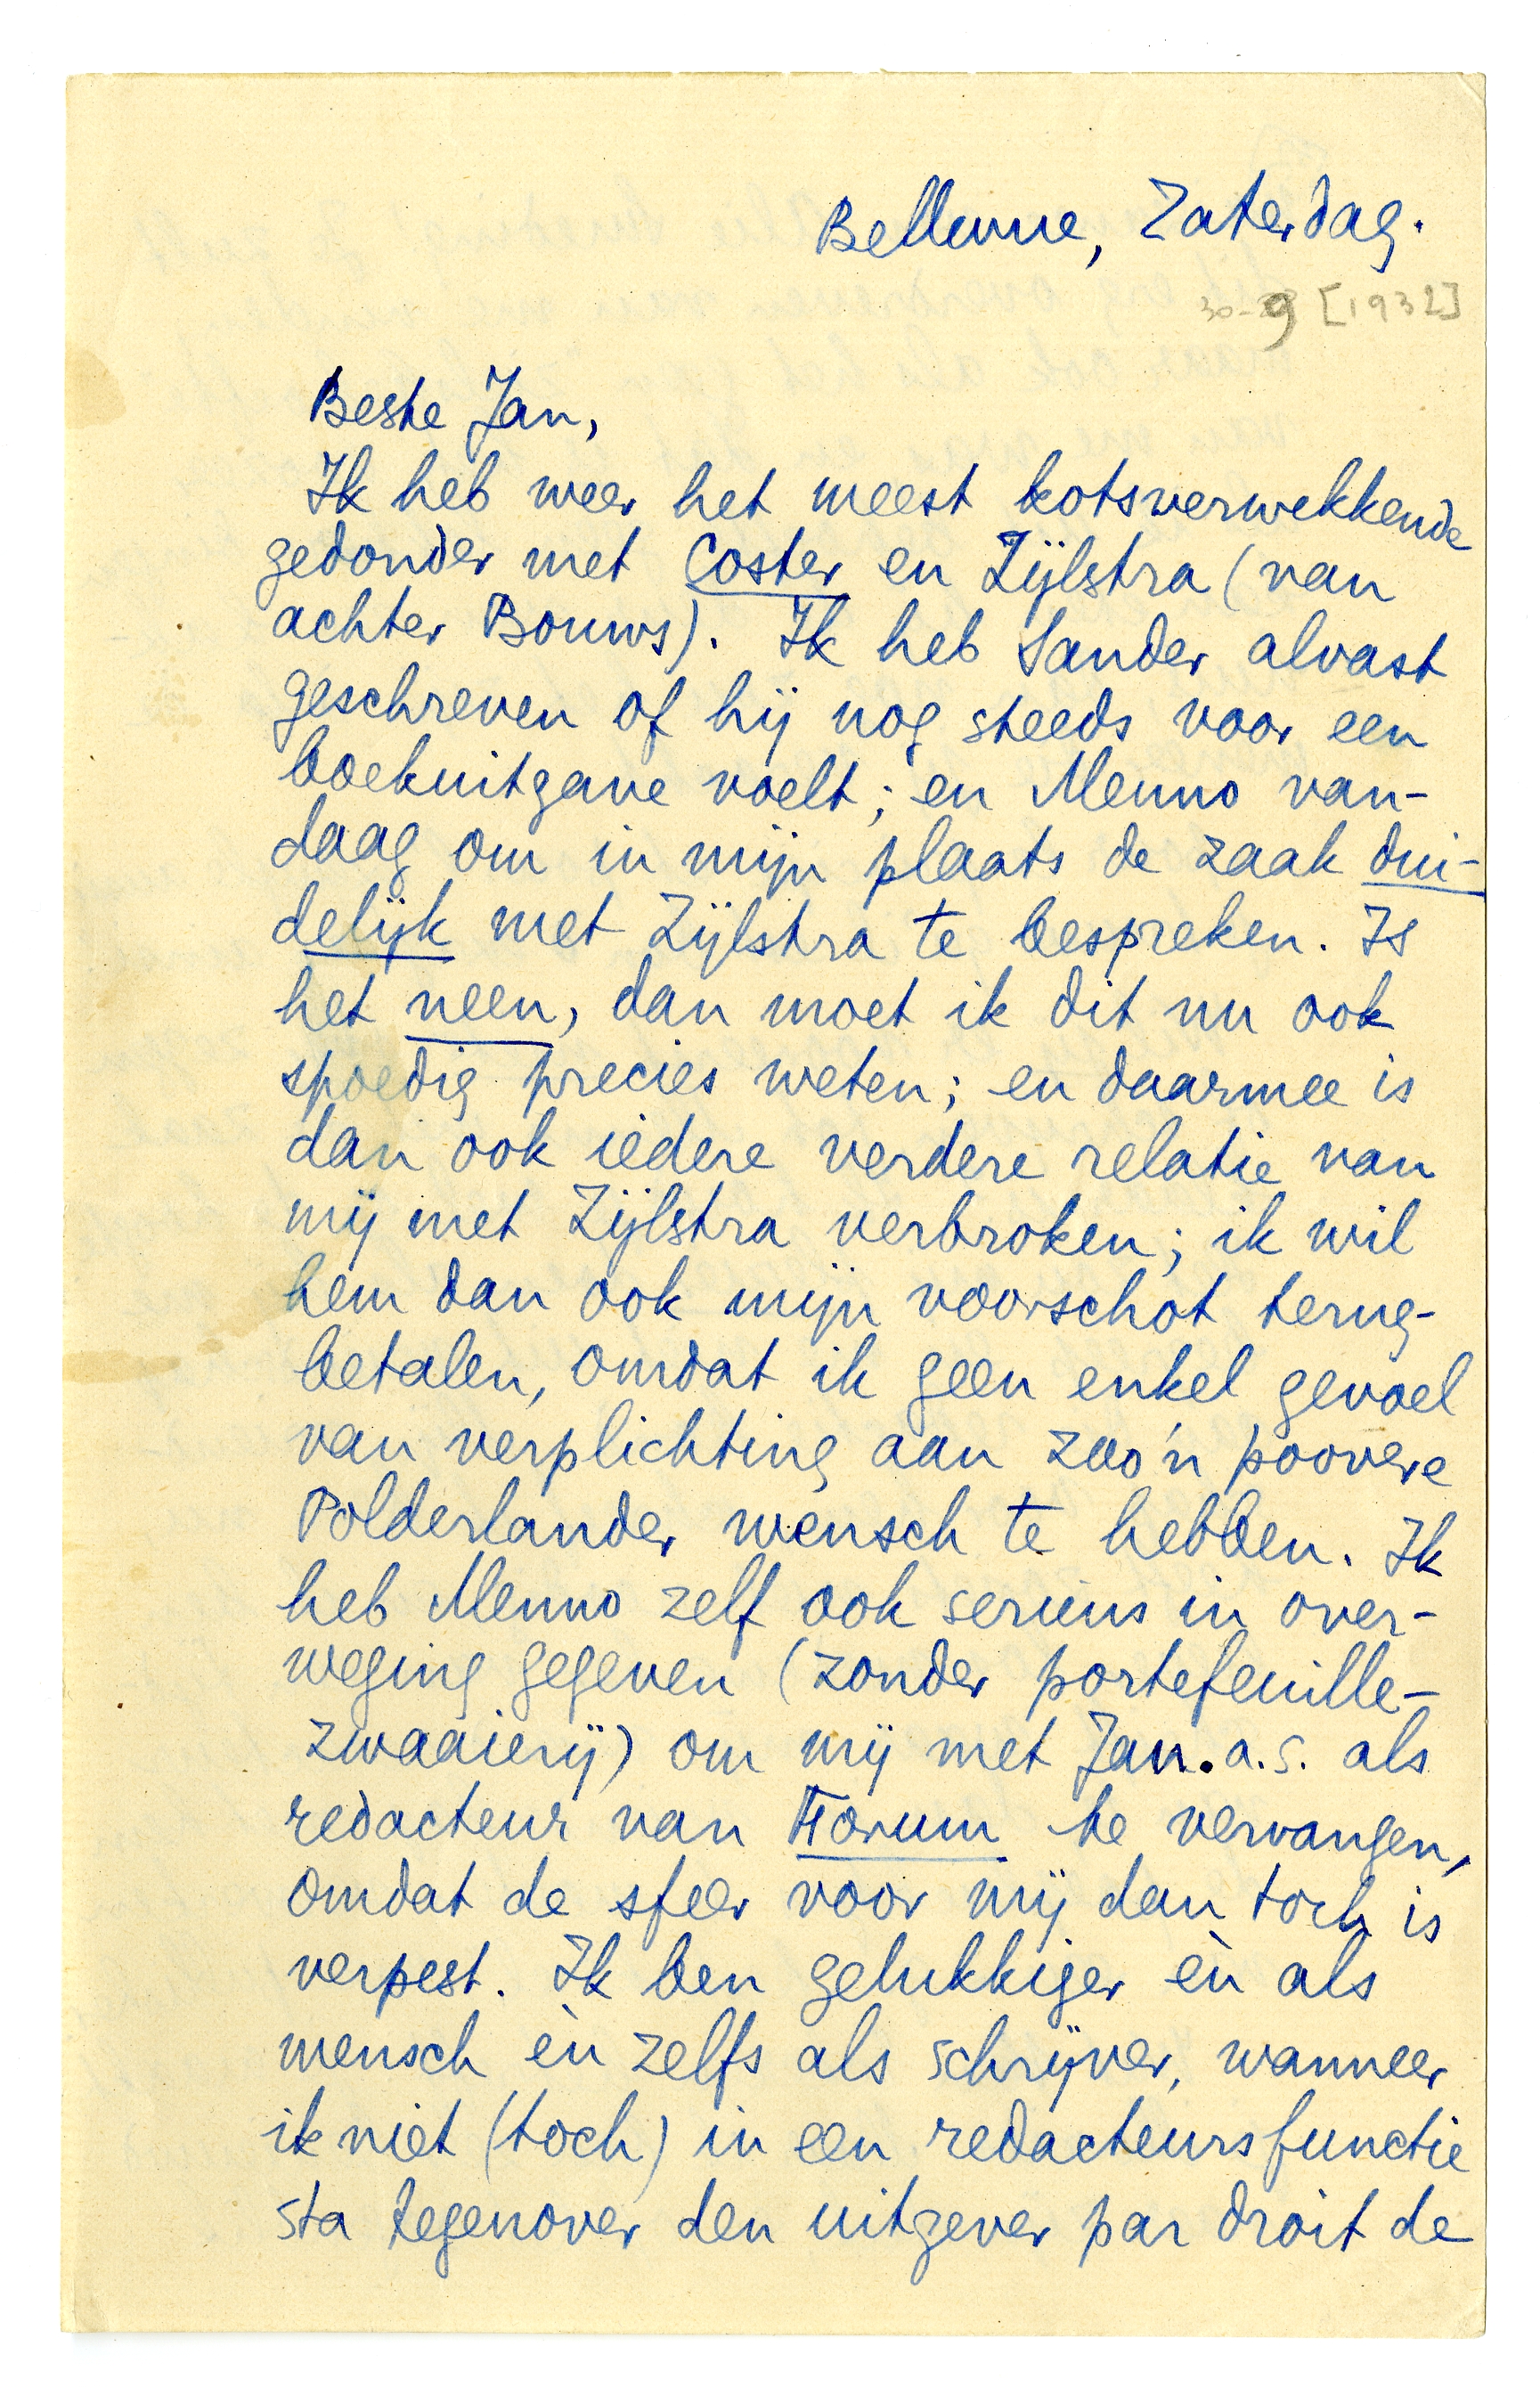 Bellevue, Zaterdag.
30-9 [1932]
Beste Jan,
Ik heb weer het meest kotsverwekkende
gedonder met Coster en Zijlstra (van
achter Bouws). Ik heb Sander alvast
geschreven of hij nog steeds voor een
boekuitgave voelt; en Menno van-
daag om in mijn plaats de zaak dui-
delijk met Zijlstra te bespreken. Is
het neen, dan moet ik dit nu ook
spoedig precies weten; en daarmee is
dan ook iedere verdere relatie van
mij met Zijlstra verbroken; ik wil
hem dan ook mijn voorschot terug-
betalen, omdat ik geen enkel gevoel
van verplichting aan zoo'n poovere
Polderlander wensch te hebben. Ik
heb Menno zelf ook serieus in over-
weging gegeven (zonder portefeuille-
zwaaierij) om mij met Jan. a.s. als
redacteur van Forum te vervangen,
omdat de sfeer voor mij dan toch is
verpest. Ik ben gelukkiger èn als
mensch èn zelfs als schrijver, wanneer
ik niet (toch) in een redacteursfunctie
sta tegenover den uitgever par droit de